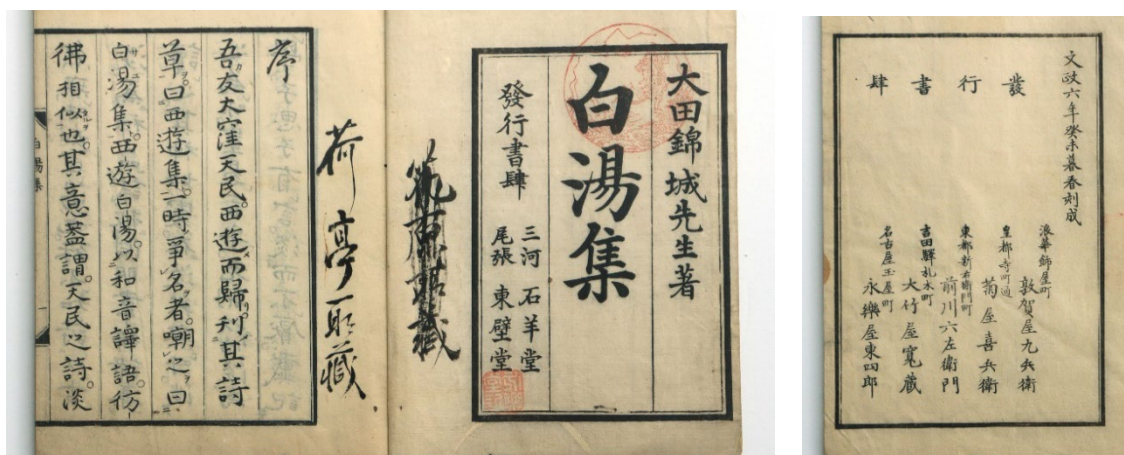 大田錦城先生著
白湯集
發行書肆
三河 石羊堂
尾張 東壁堂
荷亭所藏
序
吾友大窪天民西遊而歸刊其詩
草曰西遊集一時爭名者嘲之曰
白湯集。西遊白湯以和音譯語彷
彿相似也。其意蓋謂天民之詩。淡
白湯集
一
文政六年癸未暮春刻成
發行書肆
浪華飾屋町 敦賀屋九兵衛
皇都寺町通 菊屋喜兵衛
東都新右衛門町 前川六左衛門
吉田驛札木町 大竹屋寛蔵
名古屋玉屋町 永樂屋東四郎